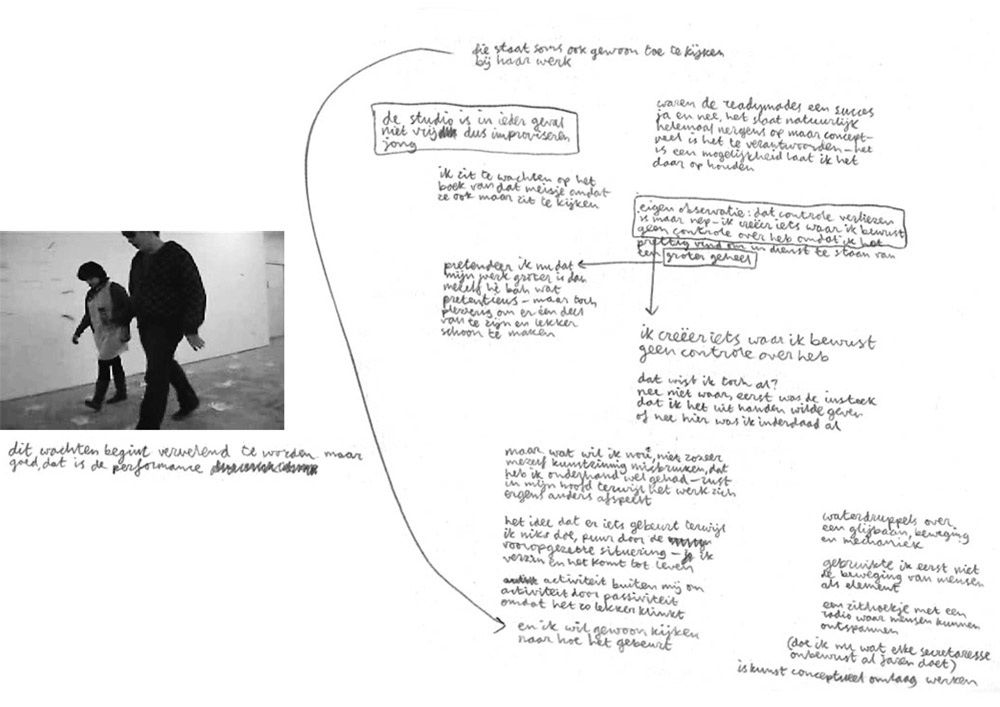 die staat soms ook gewoon toe te kijken
bij haar werk
de studio is in ieder geval
niet vrij dus improviseren
jong
waren de readymades een succes
ja en nee, het slaat natuurlijk
helemaal nergens op maar concept-
ueel is het te verantwoorden – het
is een mogelijkheid laat ik het
daar op houden
ik zit te wachten op het
boek van dat meisje omdat
ze ook maar zit te kijken
eigen observatie: dat controle verliezen
is maar nep – ik creëer iets waar ik bewust
geen controle over heb omdat ik het
prettig vind om in dienst te staan van
een groter geheel
pretendeer ik nu dat
mijn werk groter is dan
mezelf hè bah wat
pretentieus – maar toch
plezierig om er één deel
van te zijn en lekker
schoon te maken
ik creëer iets waar ik bewust
geen controle over heb
dat wist ik toch al?
nee niet waar, eerst was de insteek
dat ik het uit handen wilde geven
of nee hier was ik inderdaad al
dit wachten begint vervelend te worden maar
goed, dat is de performance
maar wat wil ik nou, niet zozeer
mezelf kunstzinnig misbruiken, dat
heb ik onderhand wel gehad – rust
in mijn hoofd terwijl het werk zich
ergens anders afspeelt
het idee dat er iets gebeurt terwijl
ik niks doe, puur door de
vooropgezette situering – ja ik
verzin en het komt tot leven
activiteit buiten mij om
activiteit door passiviteit
omdat het zo lekker klinkt
en ik wil gewoon kijken
naar hoe het gebeurt
waterdruppels over
een glijbaan, beweging
en mechaniek
gebruikte ik eerst niet
de beweging van mensen
als element
een zithoekje met een
radio waar mensen kunnen
ontspannen
(doe ik nu wat elke secretaresse
onbewust al jaren doet)
is kunst conceptueel omlaag werken